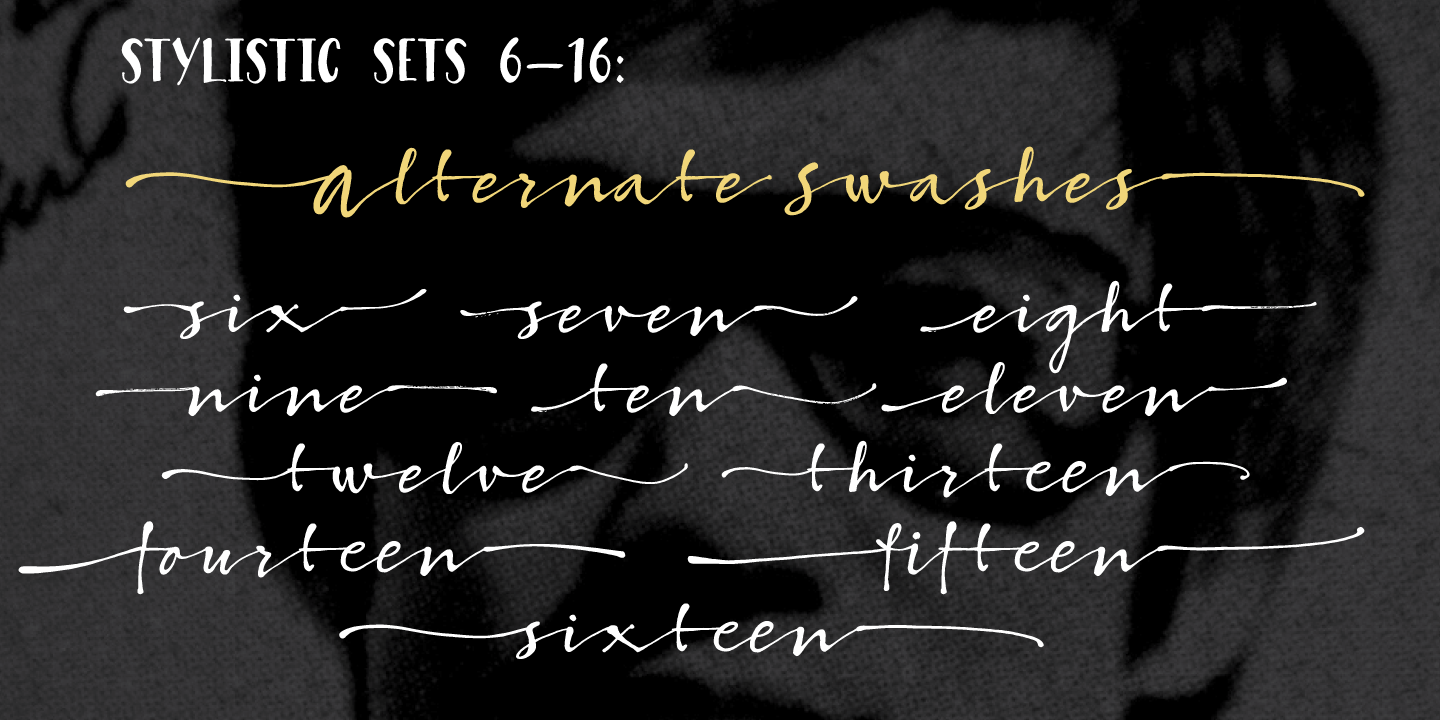 STYLISTIC SETS 6–16:
alternate swashes
six seven eight
nine ten eleven
twelve thirteen
fourteen fifteen
sixteen